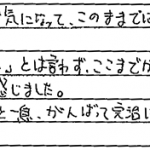 気になって、このままでは
」とは言わず、ここまでが
感じました。
と一息、がんばって完治し